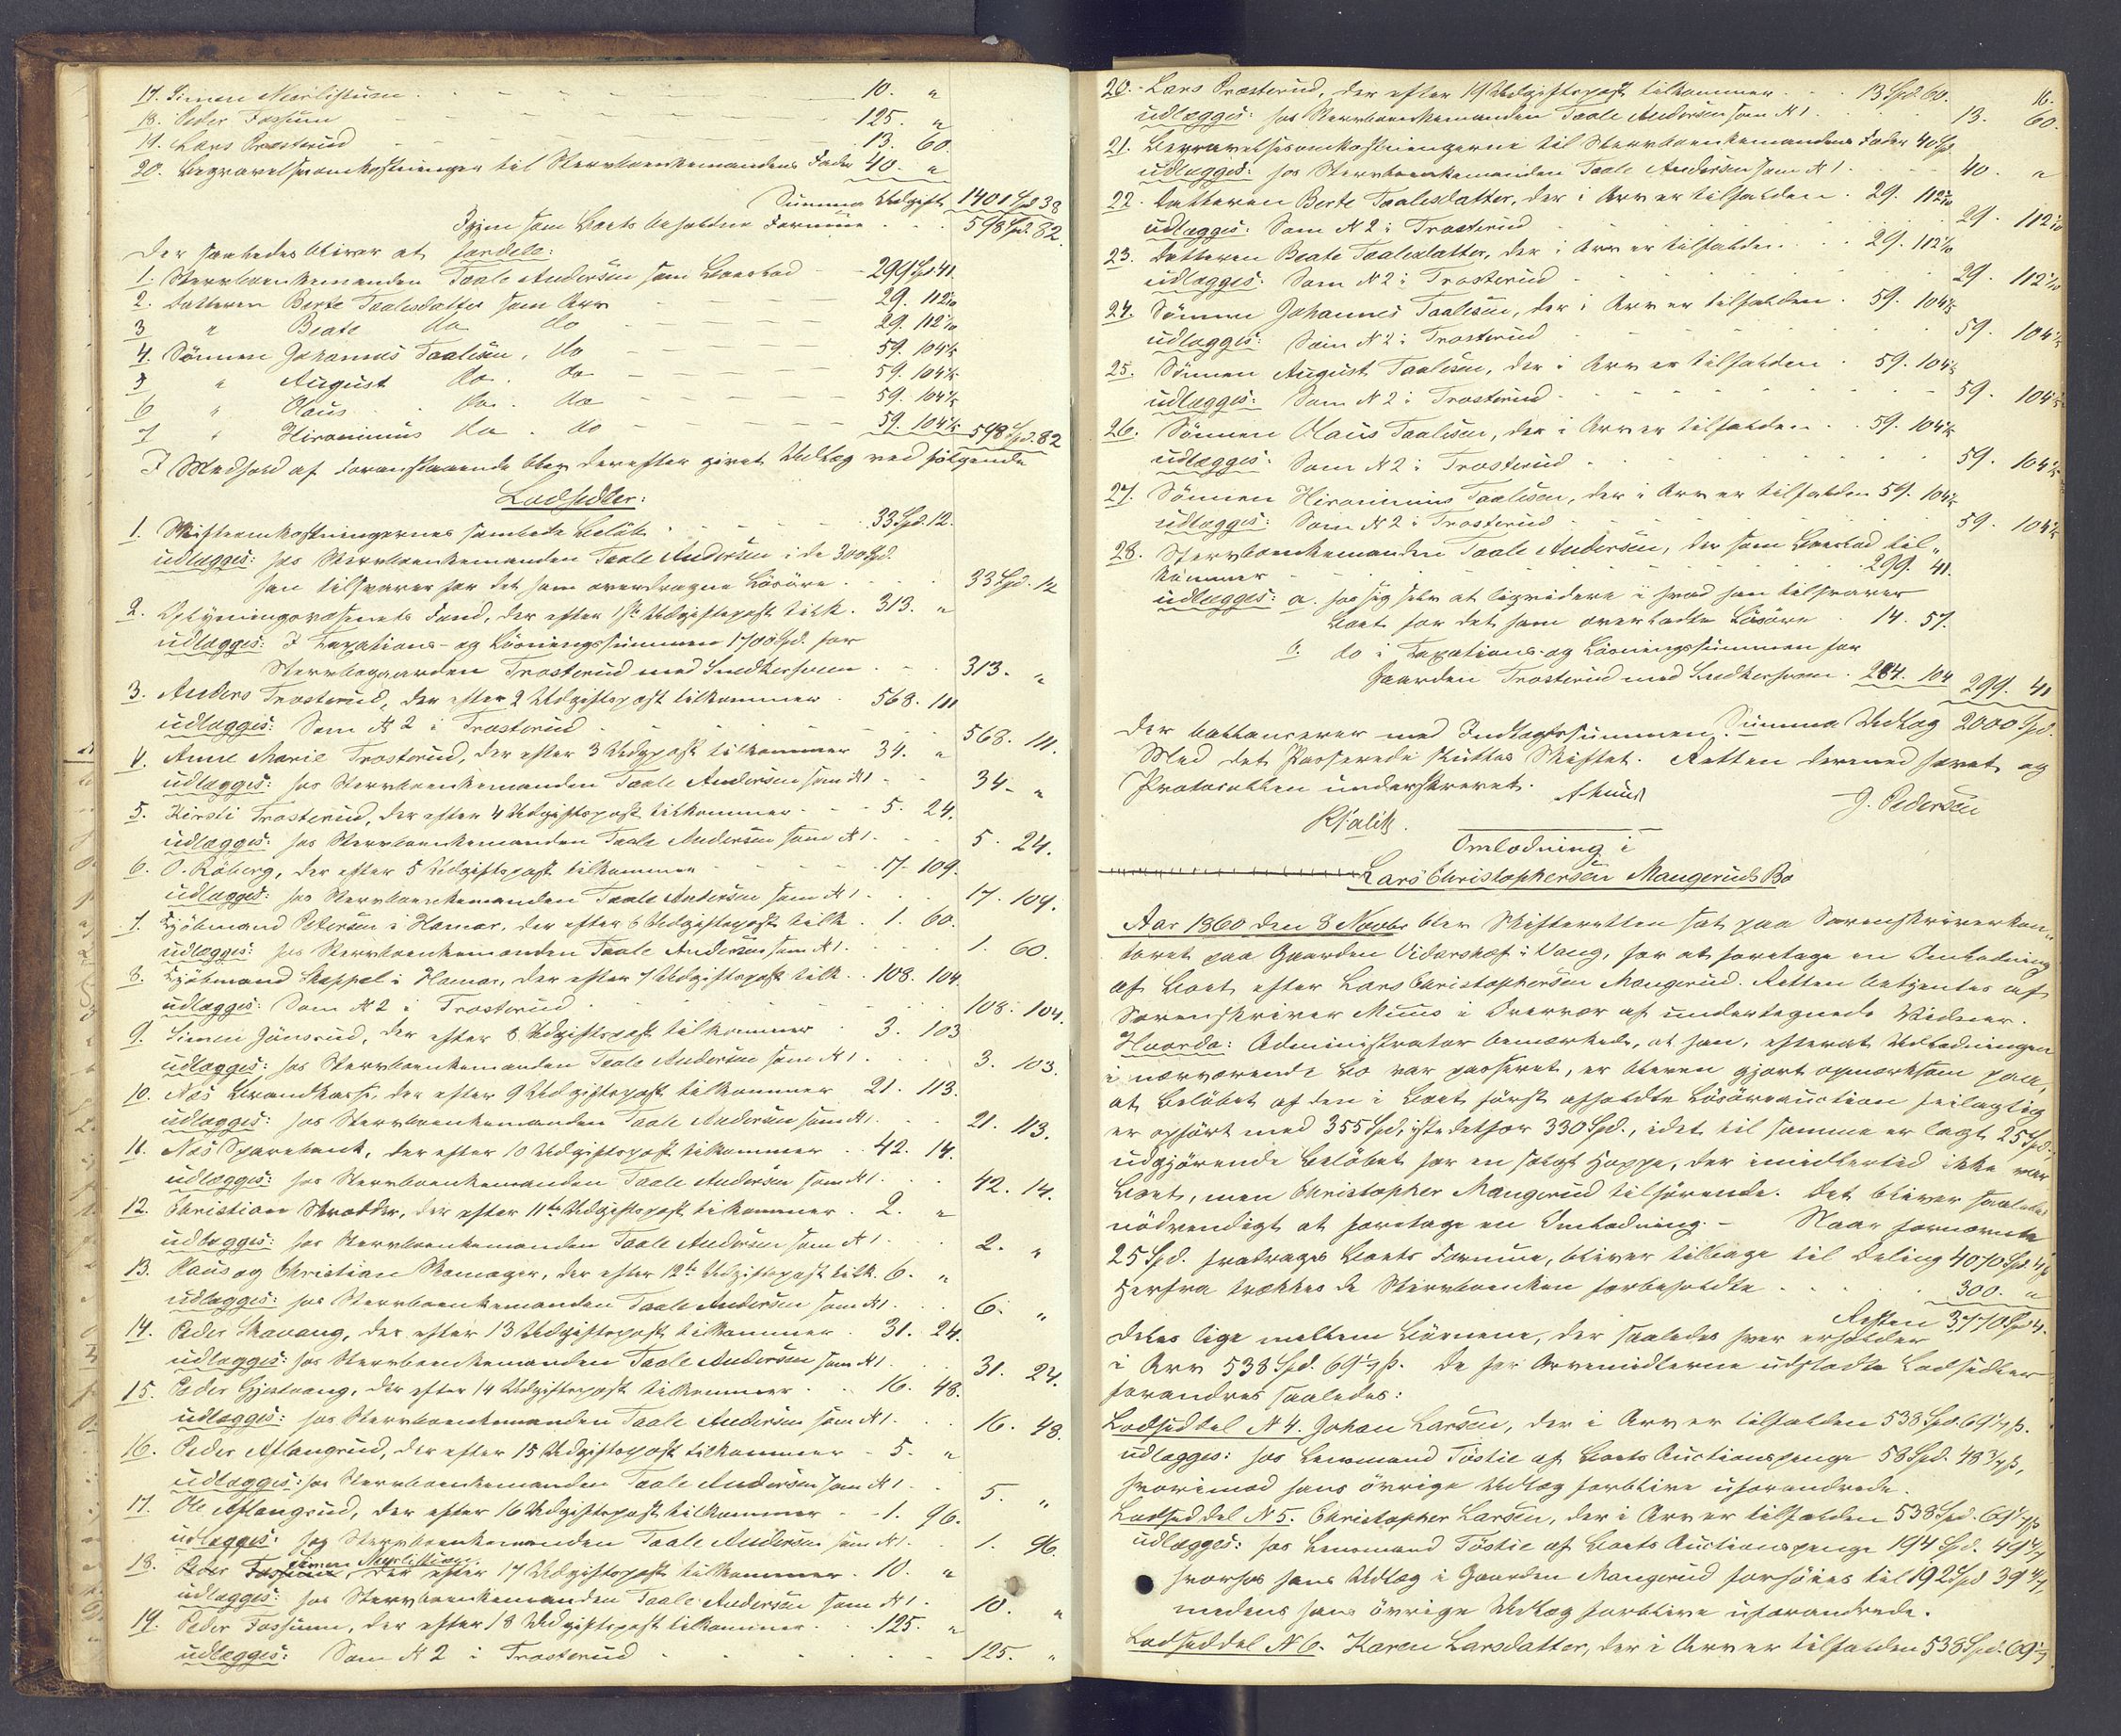 17. Simen Merlistuen - - - - - - 10. "
18. Peder Fossum - - - - - - 125. "
19. Lars Prosterud - - - - - - 13. 60.
20. Begravelsesomkostninger til Stervboenkemandens Fader 40. "
Summa Udgift 1401 Spd 38
Igjen som Boets beholdne Formue . . . 598 Spd. 82.
der saaledes bliver at fordele:
1. Stervboenkemanden Taale Andersen som Boeslod - - 299 Spd 41.
2. Datteren Berte Taalesdatter som Arv - - 29. 112 1/10
3 " Beate do do - - - - 29. 112 1/10
4. Sønnen Johannes Taalesen, do - - - - 59. 104 1/5
5 " August do. do - - - - 59. 104 1/5
6 " Olaus . do. do - - - - 59. 104 1/5
7 " Hironimus do. do - - - - 59. 104 1/5 598 Spd. 82
I Medhold af Foranstaaende blev derefter givet Udlæg ved følgende
Lodsedler:
1. Skifteomkostningernes samlede Beløb - - - 33 Spd. 12.
udlægges: hos Stervboenkemanden Taale Andersen i de 300 Spd.
han tilsvarer for det ham overdragne Løsøre . . . 33 Spd. 12
2. Oplysningsvæsenets Fond, der efter 1ste Udgiftspost tilk. 313. "
udlægges: I Taxations- og Løsningssummen 1700 Spd. for
Stervbogaarden Trosterud med . . . 313. "
3. Anders Trosterud, der efter 2 Udgiftspost tilkommer . 568. 111
udlægges: Som N 2 i Trosterud . . . 568. 111.
4. Anne Marie Trosterud, der efter 3 Udgpost tilkommer 34. "
udlægges: hos Stervboenkemanden Taale Andersen som N 1 . . 34. "
5. Kirsti Trosterud, der efter 4 Udgiftspost tilkommer - - - 5. 24.
udlægges: hos Stervboenkemanden Taale Andersen som N 1. . 5. 24.
6. O. Røberg, der efter 5 Udgiftspost tilkommer - - - 17. 109.
udlægges: hos Stervboenkemanden Taale Andersen som N 1. . . 17. 109.
7. Kjøbmand Petersen i Hamar, der efter 6 Udgiftspost tilk. . 1. 60.
udlægges: hos Stervboenkemanden Taale Andersen som N 1. . . 1. 60.
8. Kjøbmand Skappel i Hamar, der efter 7 Udgiftspost tilk. . 108. 104.
udlægges: Som N 2 i Trosterud . . . 108. 104.
9. Simen Jønsrud, der efter 8 Udgiftspost tilkommer . 3. 103
udlægges: hos Stervboenkemanden Taale Andersen som N 1. . . 3. 103.
10. Næs Brandkasse, der efter 9 Udgiftspost tilkommer 21. 113.
udlægges: hos Stervboenkemanden Taale Andersen som N 1. . . 21. 113.
11. Næs Sparebank, der efter 10 Udgiftspost tilkommer . . 42. 14.
udlægges: hos Stervboenkemanden Taale Andersen som N 1. . . 42. 14.
12. Christian Skrædder, der efter 11te Udgiftspost tilkommer . 2. "
udlægges: hos Stervboenkemanden Taale Andersen som N 1. . . 2. "
13. Klaus og Christian Skomager, der efter 12te Udgiftspost tilk. 6. "
udlægges: hos Stervboenkemanden Taale Andersen som N 1. . . 6. "
14. Peder Skavang, der efter 13 Udgiftspost tilkommer . 31. 24.
udlægges: hos Stervboenkemanden Taale Andersen som N 1. . . 31. 24.
15. Peder Gjestvang, der efter 14 Udgiftspost tilkommer . . 16. 48.
udlægges: hos Stervboenkemanden Taale Andersen som N 1. . . 16. 48.
16. Peder Aslangrud, der efter 15 Udgiftspost tilkommer - 5. "
udlægges: hos Stervboenkemanden Taale Andersen som N 1. . . 5. "
17. Ole Aslangrud, der efter 16 Udgiftspost tilkommer - - 1. 96.
udlægges: hos Stervboenkemanden Taale Andersen som N 1. . 1. 96.
18. Peder Fossum, Simen Myrlistuen, der efter 17 Udgiftspost tilkommer . 10. "
udlægges: hos Stervboenkemanden Taale Andersen som N 1. . 10. "
19. Peder Fossum, der efter 18 Udgiftspost tilkommer . . 125. "
udlægges: Som N 2 i Trosterud . . . 125. "
16.
20. Lars Prosterud, der efter 19 Udgiftspost tilkommer . . 13 Spd. 60.
udlægges: hos Stervboenkemanden Taale Andersen som N 1 . . . 13. 60.
21. Begravelsesomkostningerne til Stervboenkemandens Fader 40 Spd
udlægges: hos Stervboenkemanden Taale Andersen som N 1. . . 40. "
22. Datteren Berte Taalesdatter, der i Arv er tilfalden . 29. 112 1/10
udlægges: Som N 2 i Trosterud . . . 29. 112 1/10
23. Datteren Beate Taalesdatter, der i Arv er tilfalden . . . 29. 112 1/10
udlægges: Som N 2 i Trosterud . . . 29. 112 1/10
24. Sønnen Johannes Taalesen, der i Arv er tilfalden . 59. 104 1/5
udlægges: Som N 2 i Trosterud . . . 59. 104 1/5
25. Sønnen August Taalesen, der i Arv er tilfalden . 59. 104 1/5
udlægges: Som N 2 i Trosterud . . . 59. 104 1/5
26. Sønnen Olaus Taalesen, der i Arv er tilfalden . . 59. 104 1/5
udlægges: Som N 2 i Trosterud . . . 59. 104 1/5
27. Sønnen Hironimus Taalesen, der i Arv er tilfalden 59. 104 1/5
udlægges: Som N 2 i Trosterud . . . 59. 104 1/5
28. Stervboenkemanden Taale Andersen, der som Boeslod til-
kommer . . . 299. 41.
udlægges: a. hos sig selv at liqvidere i hvad han tilsvarer
Boet for det ham overladte Løsøre . 14. 57.
b. do i Taxations- og Løsningssummen for
Gaarden Trosterud med . 284. 104 299. 41
Summa Udlæg 2000 Spd.
der ballancerer med Indtægtssummen.
Med det Passerede sluttes Skiftet. Retten dermed hævet og
Protocollen underskrevet.
AMunch J. Pedersen
Omlodning i
Lars Christophersen Mangeruds Bo
Aar 1860 den 8 Novbr blev Skifteretten sat paa Sorenskriverkon-
toret paa Gaarden Vidarshof i Vang, for at foretage en Omlodning
af Boet efter Lars Christophersen Mangerud. Retten betjentes af
Sorenskriver Munch i Overvær af undertegnede Vidner.
Hvorda: Administrator bemærkede, at han, efterat Udlodningen
i nærværende Bo var passeret, er bleven gjort opmærksom paa,
at Beløbet af den i Boet først afholdte Løsøreauction feilagtig
er opført med 355 Spd, istedetfor 330 Spd., idet til samme er lagt 25 Spd.,
udgjørende Beløbet for en solgt Hoppe, der imidlertid ikke var
Boets, men Christopher Mangerud tilhørende. Det bliver saaledes
nødvendigt at foretage en Omlodning. - Naar fornævnte
25 Spd. fradrages Boets Formue, bliver tilbage til Deling 4070 Spd. 4 ß
Herfra trækkes de Stervboenken forbeholdte . . . 300. "
Resten 3770 Spd. 4.
deles lige mellem Børnene, der saaledes hver erholder
i Arv 538 Spd. 69 1/7 ß. De for Arvemidlerne udstedte Lodsedler
forandres saaledes:
Lodseddel N 4. Johan Larsen, der i Arv er tilfalden 538 Spd. 69 1/7 ß.
udlægges: hos Lensmand Tøstie af Boets Auctionspenge 58 Spd. 48 3/7 ß,
hvorimod hans øvrige Udlæg forblive uforandrede.
Lodseddel N 5. Christopher Larsen, der i Arv er tilfalden 538 Spd. 69 1/7 ß
udlægges: hos Lensmand Tøstie af Boets Auctionspenge 194 Spd. 49 4/7
hvorhos hans Udlæg i Gaarden Mangerud forhøies til 192 Spd 39 4/7,
medens hans øvrige Udlæg forblive uforandrede.
Lodseddel N 6. Karen Larsdatter, der i Arv er tilfalden 538 Spd. 69 1/7